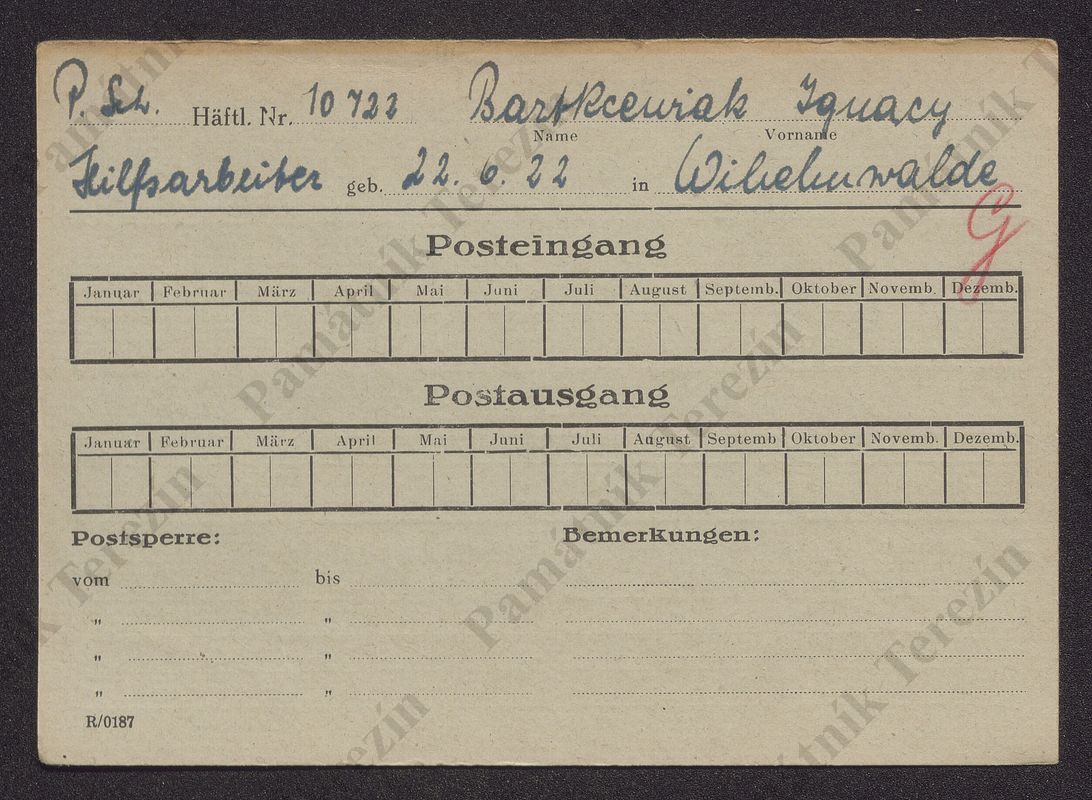 P. Sch. Häftl. Nr. 10722 Bartkcewiak Ignacy
Name Vorname
Hilfsarbeiter geb. 22. 6. 22 in Wilhelmwalde
G
Posteingang
Januar Februar März April Mai Juni Juli August Septemb. Oktober Novemb. Dezemb.
Postausgang
Januar Februar März April Mai Juni Juli August Septemb Oktober Novemb. Dezemb.
Postsperre: Bemerkungen:
vom bis
" "
" "
" "
R/0187
Památník Terezín